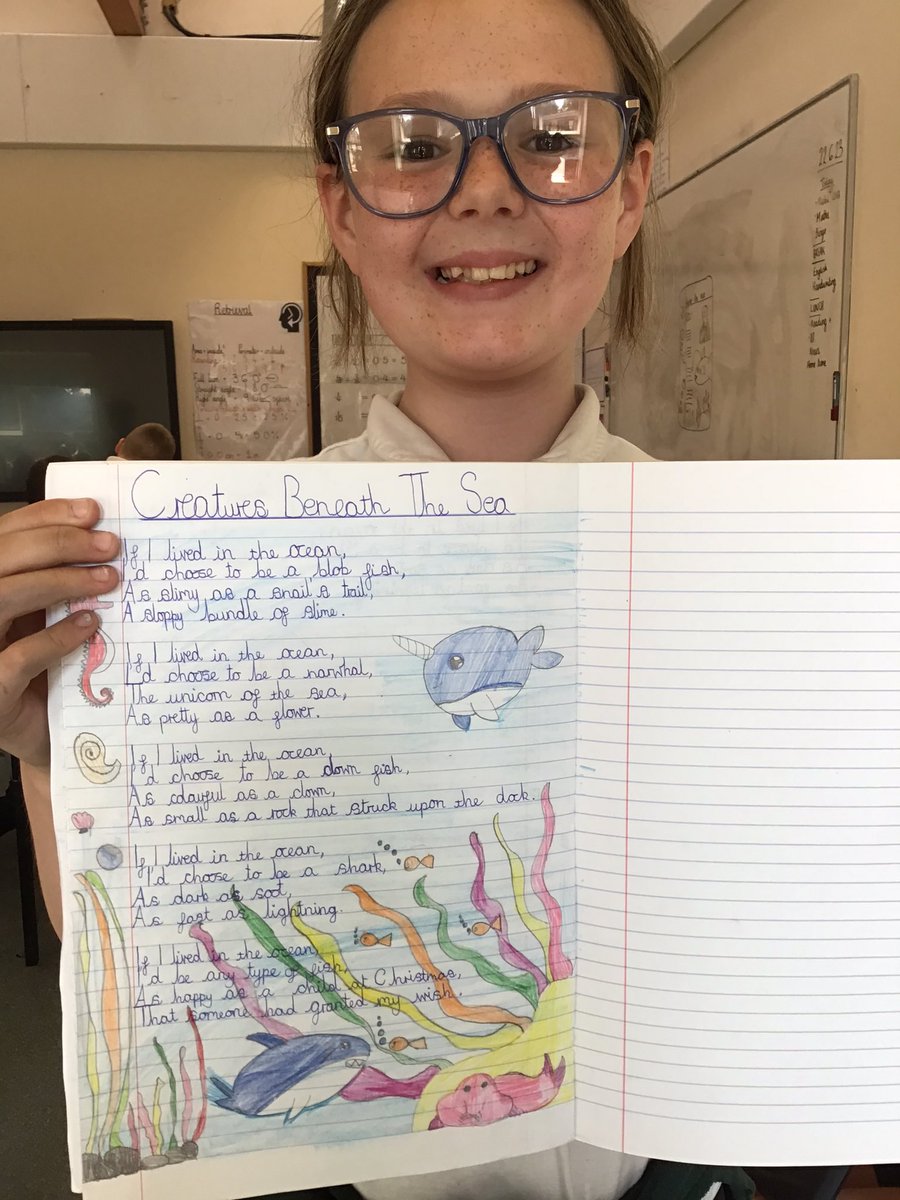 Creatures Beneath The Sea
If I lived in the ocean,
I'd choose to be a blob fish,
As slimy as a snail's trail,
A sloppy bundle of slime.
If I lived in the ocean,
I'd choose to be a narwhal,
The unicorn of the sea,
As pretty as a flower.
If I lived in the ocean,
I'd choose to be a clown fish,
As colayful as a clown,
As small as a rock that struck upon the dock.
If I lived in the ocean,
I'd choose to be a shark,
As dark as soot,
As fast as lightning.
If I lived in the ocean,
I'd be any type of fish,
As happy as a child at Christmas,
That someone had granted my wish.
Retrieval
22.6.23
Today
Maths
BREAK
English
Handwriting
LUNCH
Reading
Home time